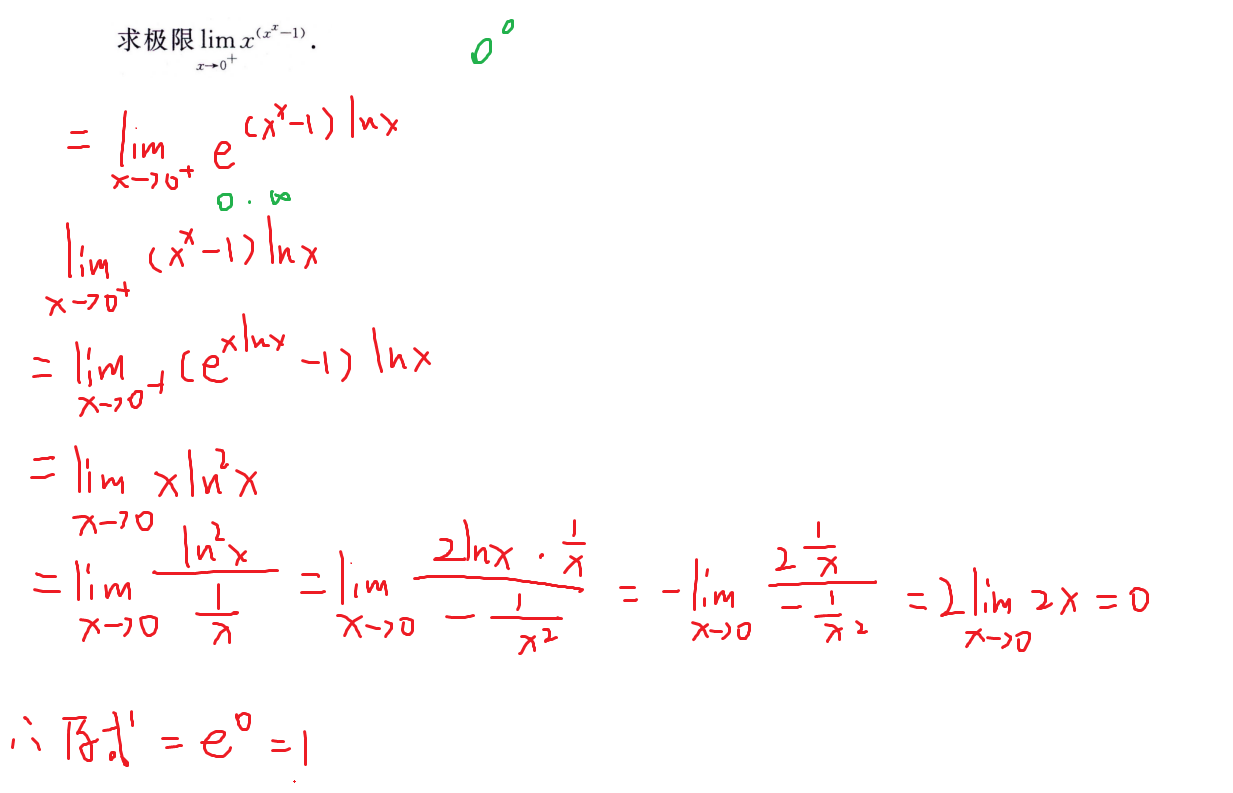 求极限 lim x→0⁺ x^(x^x−1). 0^0
= lim x→0⁺ e^((x^x−1) ln x)
0 · ∞
lim x→0⁺ (x^x−1) ln x
= lim x→0⁺ (e^(x ln x) −1) ln x
= lim x→0 x ln²x
= lim x→0 (ln²x)/(1/x) = lim x→0 (2 ln x · 1/x)/(− 1/x²) = − lim x→0 (2 1/x)/(− 1/x²) = 2 lim x→0 2x = 0
∴ 原式 = e^0 = 1